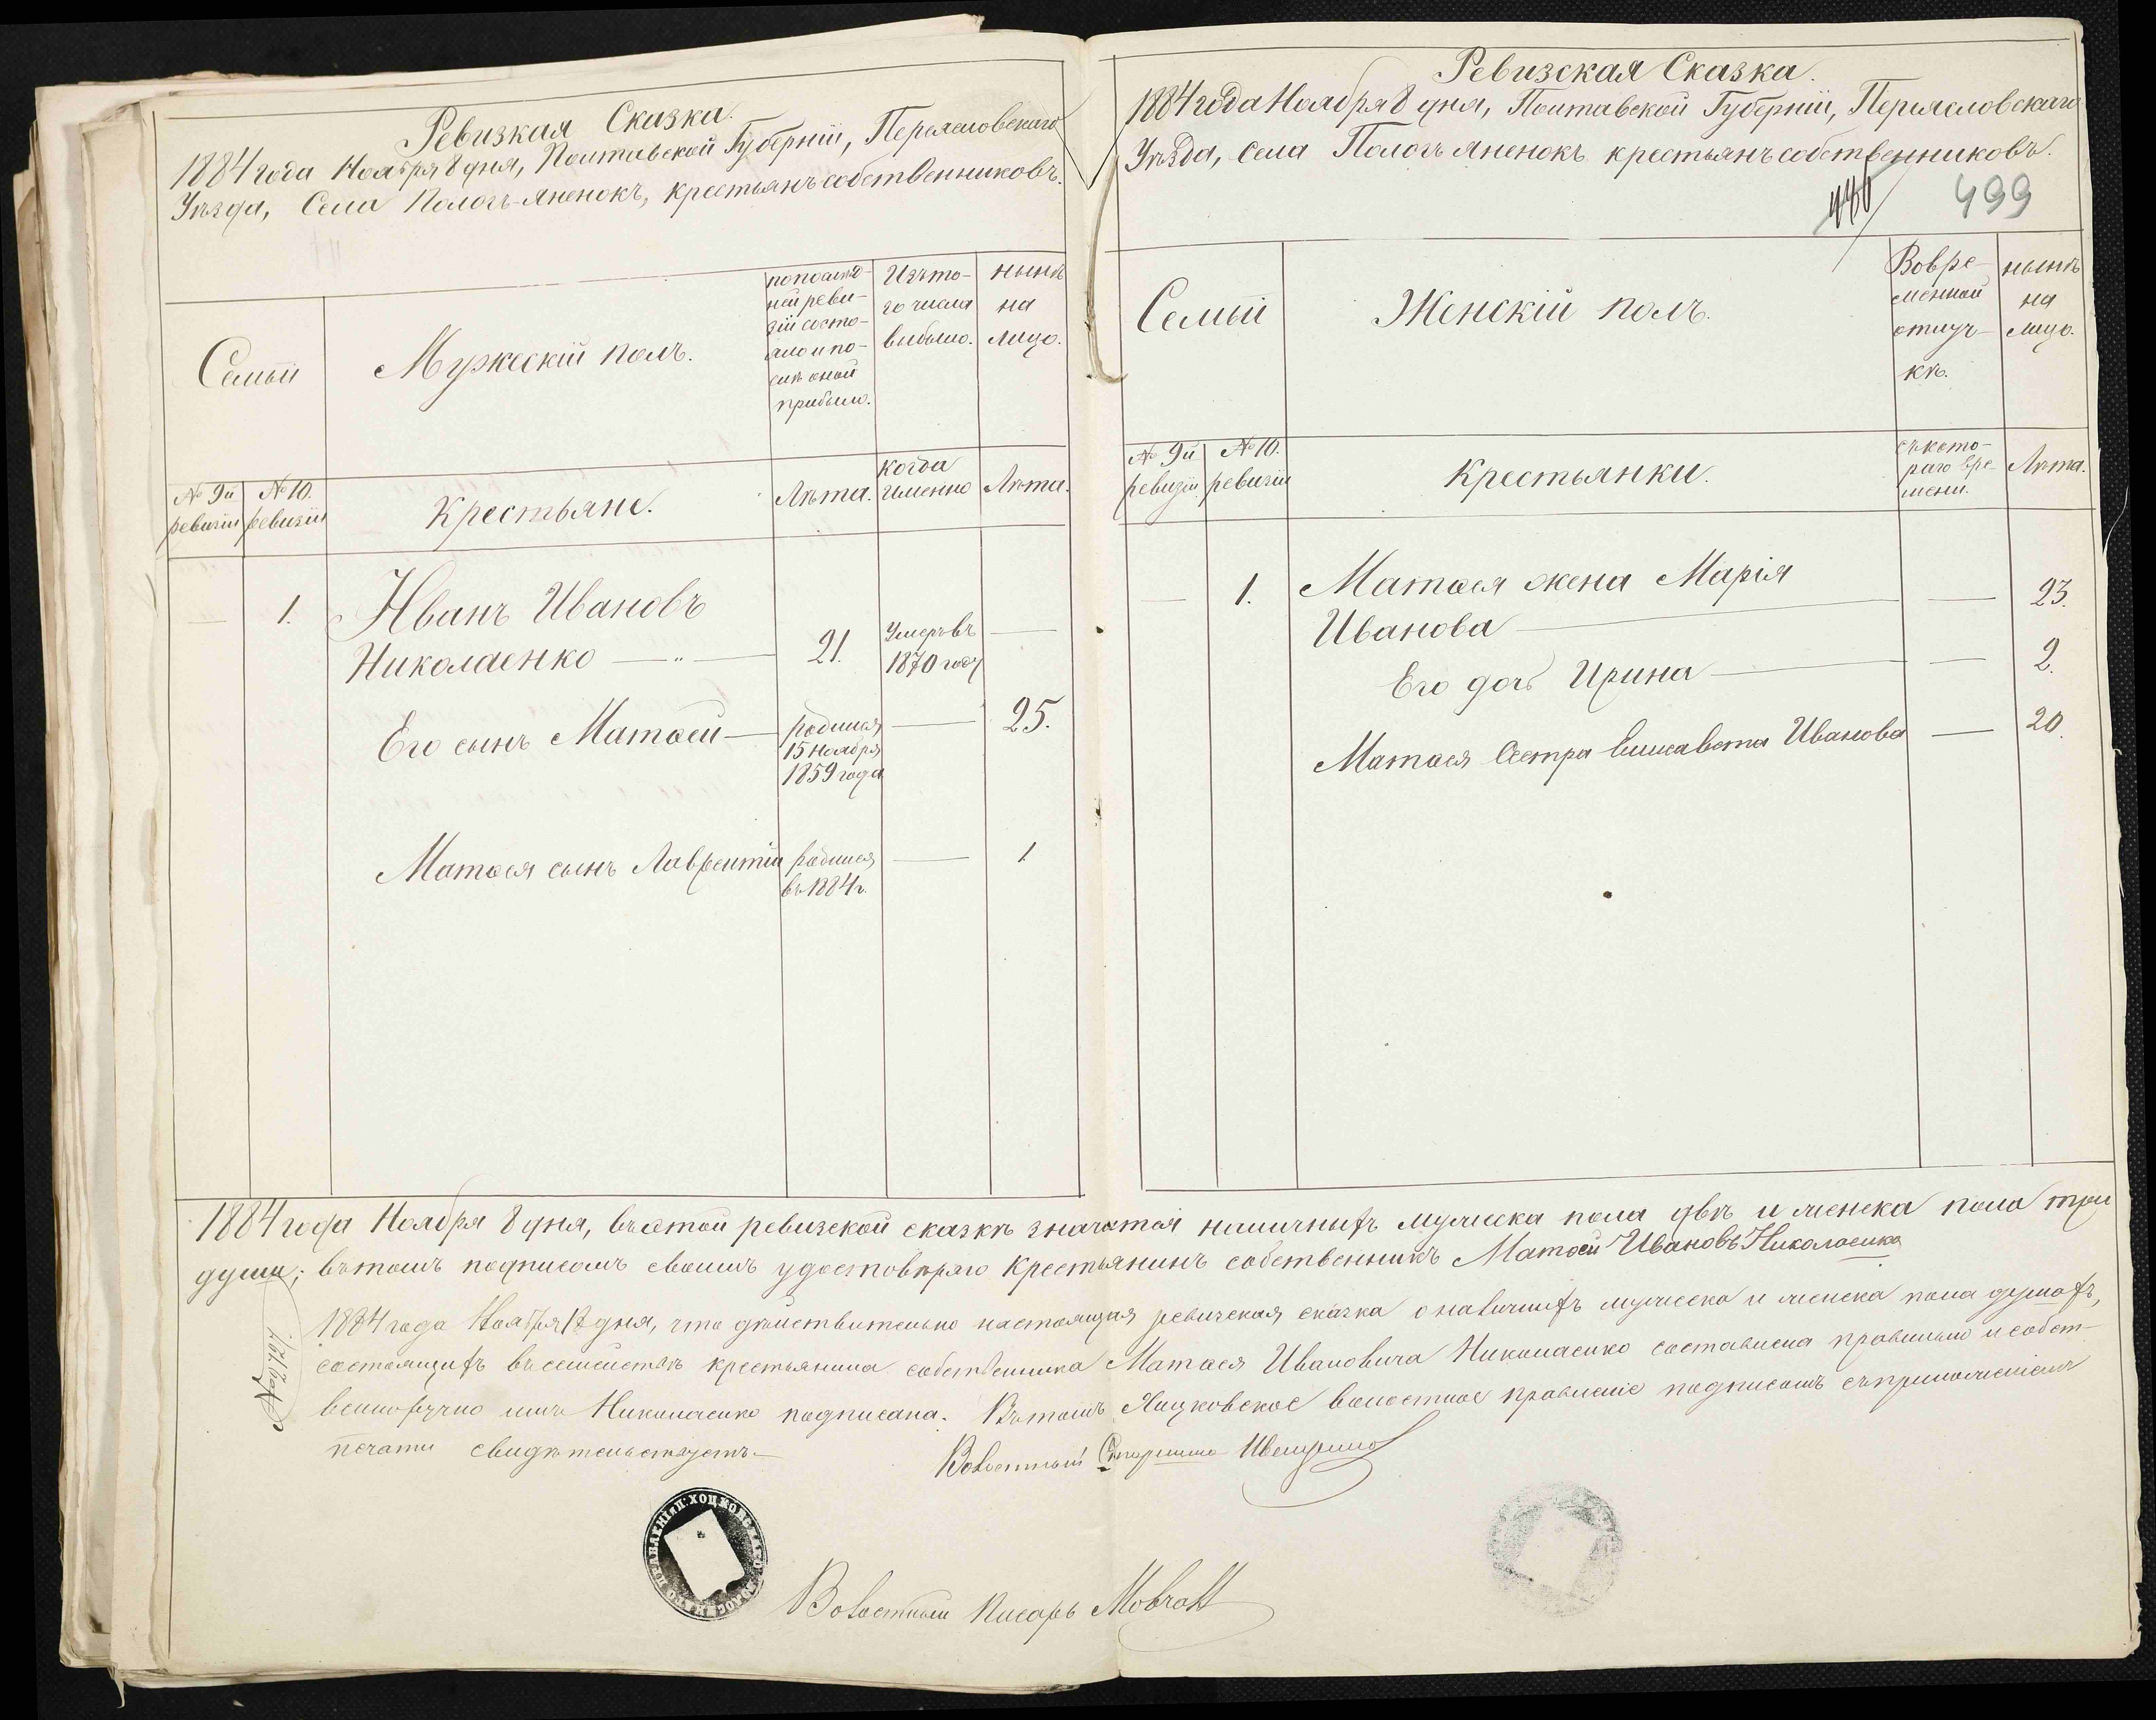 Ревизкая Сказка.
1884 года Ноября 8 дня, Полтавской Губерніи, Переясловскаго
Уѣзда, Села Пологъ-Яненокъ, крестьянъ собственниковъ.
Семьи
Мужескій полъ.
по послѣд-
ней реви-
зіи состо-
яло и по-
слѣ оной
прибыло.
Изъ то-
го числа
выбыло.
нынѣ
на
лицо.
№ 9й
ревизіи
№ 10.
ревизіи
Крестьяне.
Лѣта.
когда
именно
Лѣта.
1.
Иванъ Ивановъ
Николаенко — „ —
21.
Умеръ въ
1870 году
Его сынъ Матвей
родился
15 ноября
1859 года
25.
Матвея сынъ Лаврентій
родился
въ 1884 г.
1
Ревизская Сказка.
1884 года Ноября 8 дня, Полтавской Губерніи, Переясловскаго
Уѣзда, села Пологъ Яненокъ крестьянъ собственниковъ.
499
Семьи
Женскій полъ.
Во вре-
менной
отлуч-
кѣ.
нынѣ
на
лицо.
№ 9й
ревизіи
№ 10.
ревизіи
Крестьянки.
съ кото-
раго вре-
мени.
Лѣта.
1.
Матвея жена Марія
Иванова
23.
Его дочь Ирина
2.
Матвея Сестра Елисавета Иванова
20.
1884 года Ноября 8 дня, въ этой ревизской сказкѣ значатся наличныхъ мужеска пола двѣ и женска пола три
души; въ томъ подписомъ своимъ удостовѣряю Крестьянинъ собственникъ Матвей Ивановъ Николаенко
1884 года Ноября дня, что дѣйствительно настоящая ревизская сказка о наличныхъ мужеска и женска пола душахъ,
состоящихъ въ семействѣ крестьянина собственника Матвея Ивановича Николаенко составлена правильно и собст-
венноручно имъ Николаенко подписана. Въ томъ Хоцковское волостное правленіе подписомъ съ приложеніемъ
печати свидѣтельствуетъ.
Волостный Старшина
ХОЦКОВСКАГО ВОЛОСТНАГО ПРАВЛЕНІЯ
Волостный Писарь